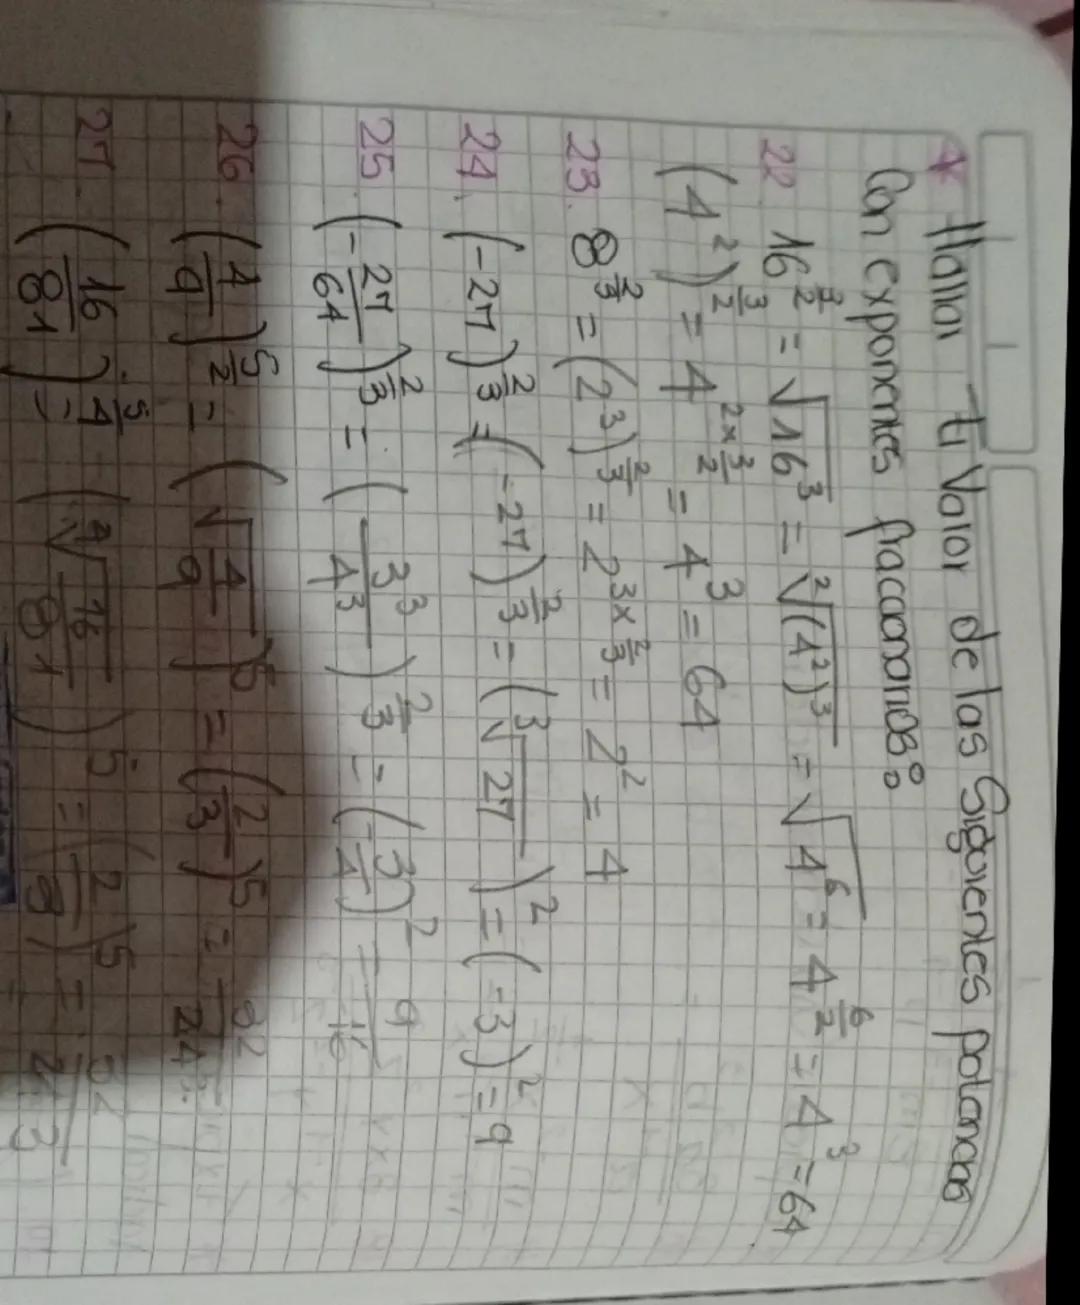 * Hallar el Valor de las Siguientes potencias
Con exponentes fraccionarios:
22. 16^{3/2} = √16³ = ²√(4²)³ = √4⁶ = 4^{6/2} = 4³ = 64
(4²)^{3/2} = 4^{2×3/2} = 4³ = 64
23. 8^{2/3} = (2³)^{2/3} = 2^{3×2/3} = 2² = 4
24. (-27)^{2/3} = (-27)^{2/3} = (³√27)² = (-3)² = 9
25. (-27/64)^{2/3} = (3³/4³)^{2/3} = (-3/4)² = 9/16
26. (4/9)^{5/2} = (√4/9)⁵ = (2/3)⁵ = 32/24
27. (16/81)^{5/4} = (⁴√16/81)⁵ = (2/3)⁵ = 32/243